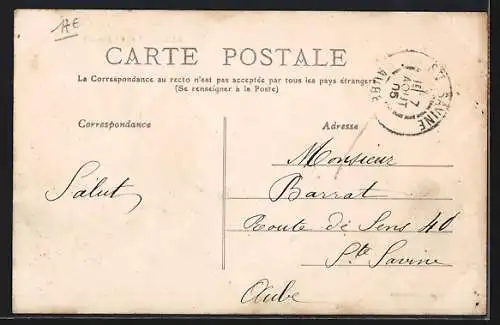 HE
CARTE POSTALE
La Correspondance au recto n'est pas acceptée par tous les pays étrangers
(Se renseigner à la Poste)
Correspondance
Adresse
Salut
Monsieur
Barrat
Route de Sens 40
Ste Savine
Aube
STE SAVINE
7
AOUT
05
AUBE